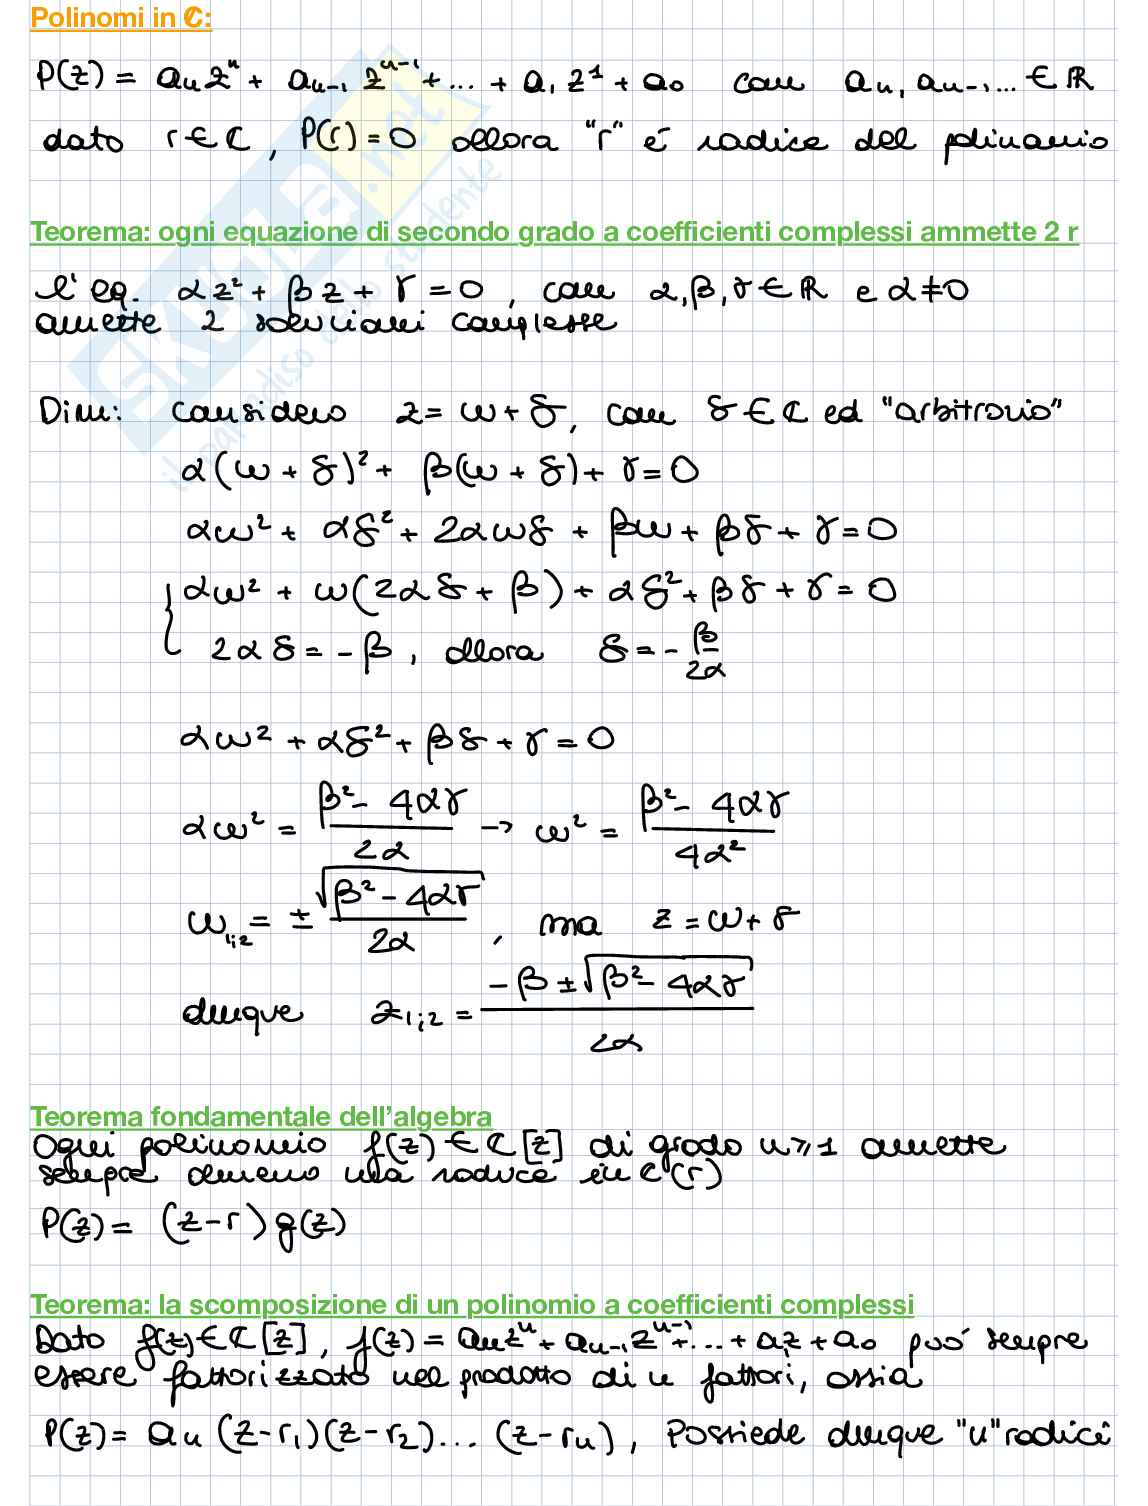 Polinomi in ℂ:
P(z) = aₙzⁿ + aₙ₋₁ zⁿ⁻¹ + ... + a₁ z¹ + a₀ con aₙ, aₙ₋₁... ∈ ℝ
dato r ∈ ℂ, P(r) = 0 allora "r" é radice del polinomio
Teorema: ogni equazione di secondo grado a coefficienti complessi ammette 2 r
l'eq. αz² + βz + γ = 0, con α, β, γ ∈ ℝ e α ≠ 0
amette 2 soluzioni complesse
Dim: considero z = w + δ, con δ ∈ ℂ ed "arbitrario"
α(w + δ)² + β(w + δ) + γ = 0
αw² + αδ² + 2αwδ + βw + βδ + γ = 0
αw² + w(2αδ + β) + αδ² + βδ + γ = 0
2αδ = -β, allora δ = -β/2α
αw² + αδ² + βδ + γ = 0
αw² = (β² - 4αγ)/2α → w² = (β² - 4αγ)/4α²
w₁;₂ = ± √(β² - 4αγ)/2α, ma z = w + δ
dunque z₁;₂ = (-β ± √(β² - 4αγ))/2α
Teorema fondamentale dell'algebra
Ogni polinomio f(z) ∈ ℂ[z] di grado n ≥ 1 ammette
sempre almeno una radice in ℂ (r)
P(z) = (z - r) g(z)
Teorema: la scomposizione di un polinomio a coefficienti complessi
Dato f(z) ∈ ℂ[z], f(z) = aₙzⁿ + aₙ₋₁zⁿ⁻¹ + ... + a₁z + a₀ puó sempre
essere fattorizzato nel prodotto di n fattori, ossia
P(z) = aₙ (z - r₁)(z - r₂)... (z - rₙ), Possiede dunque "n" radici
SKUOLA.net
il paradiso dello studente